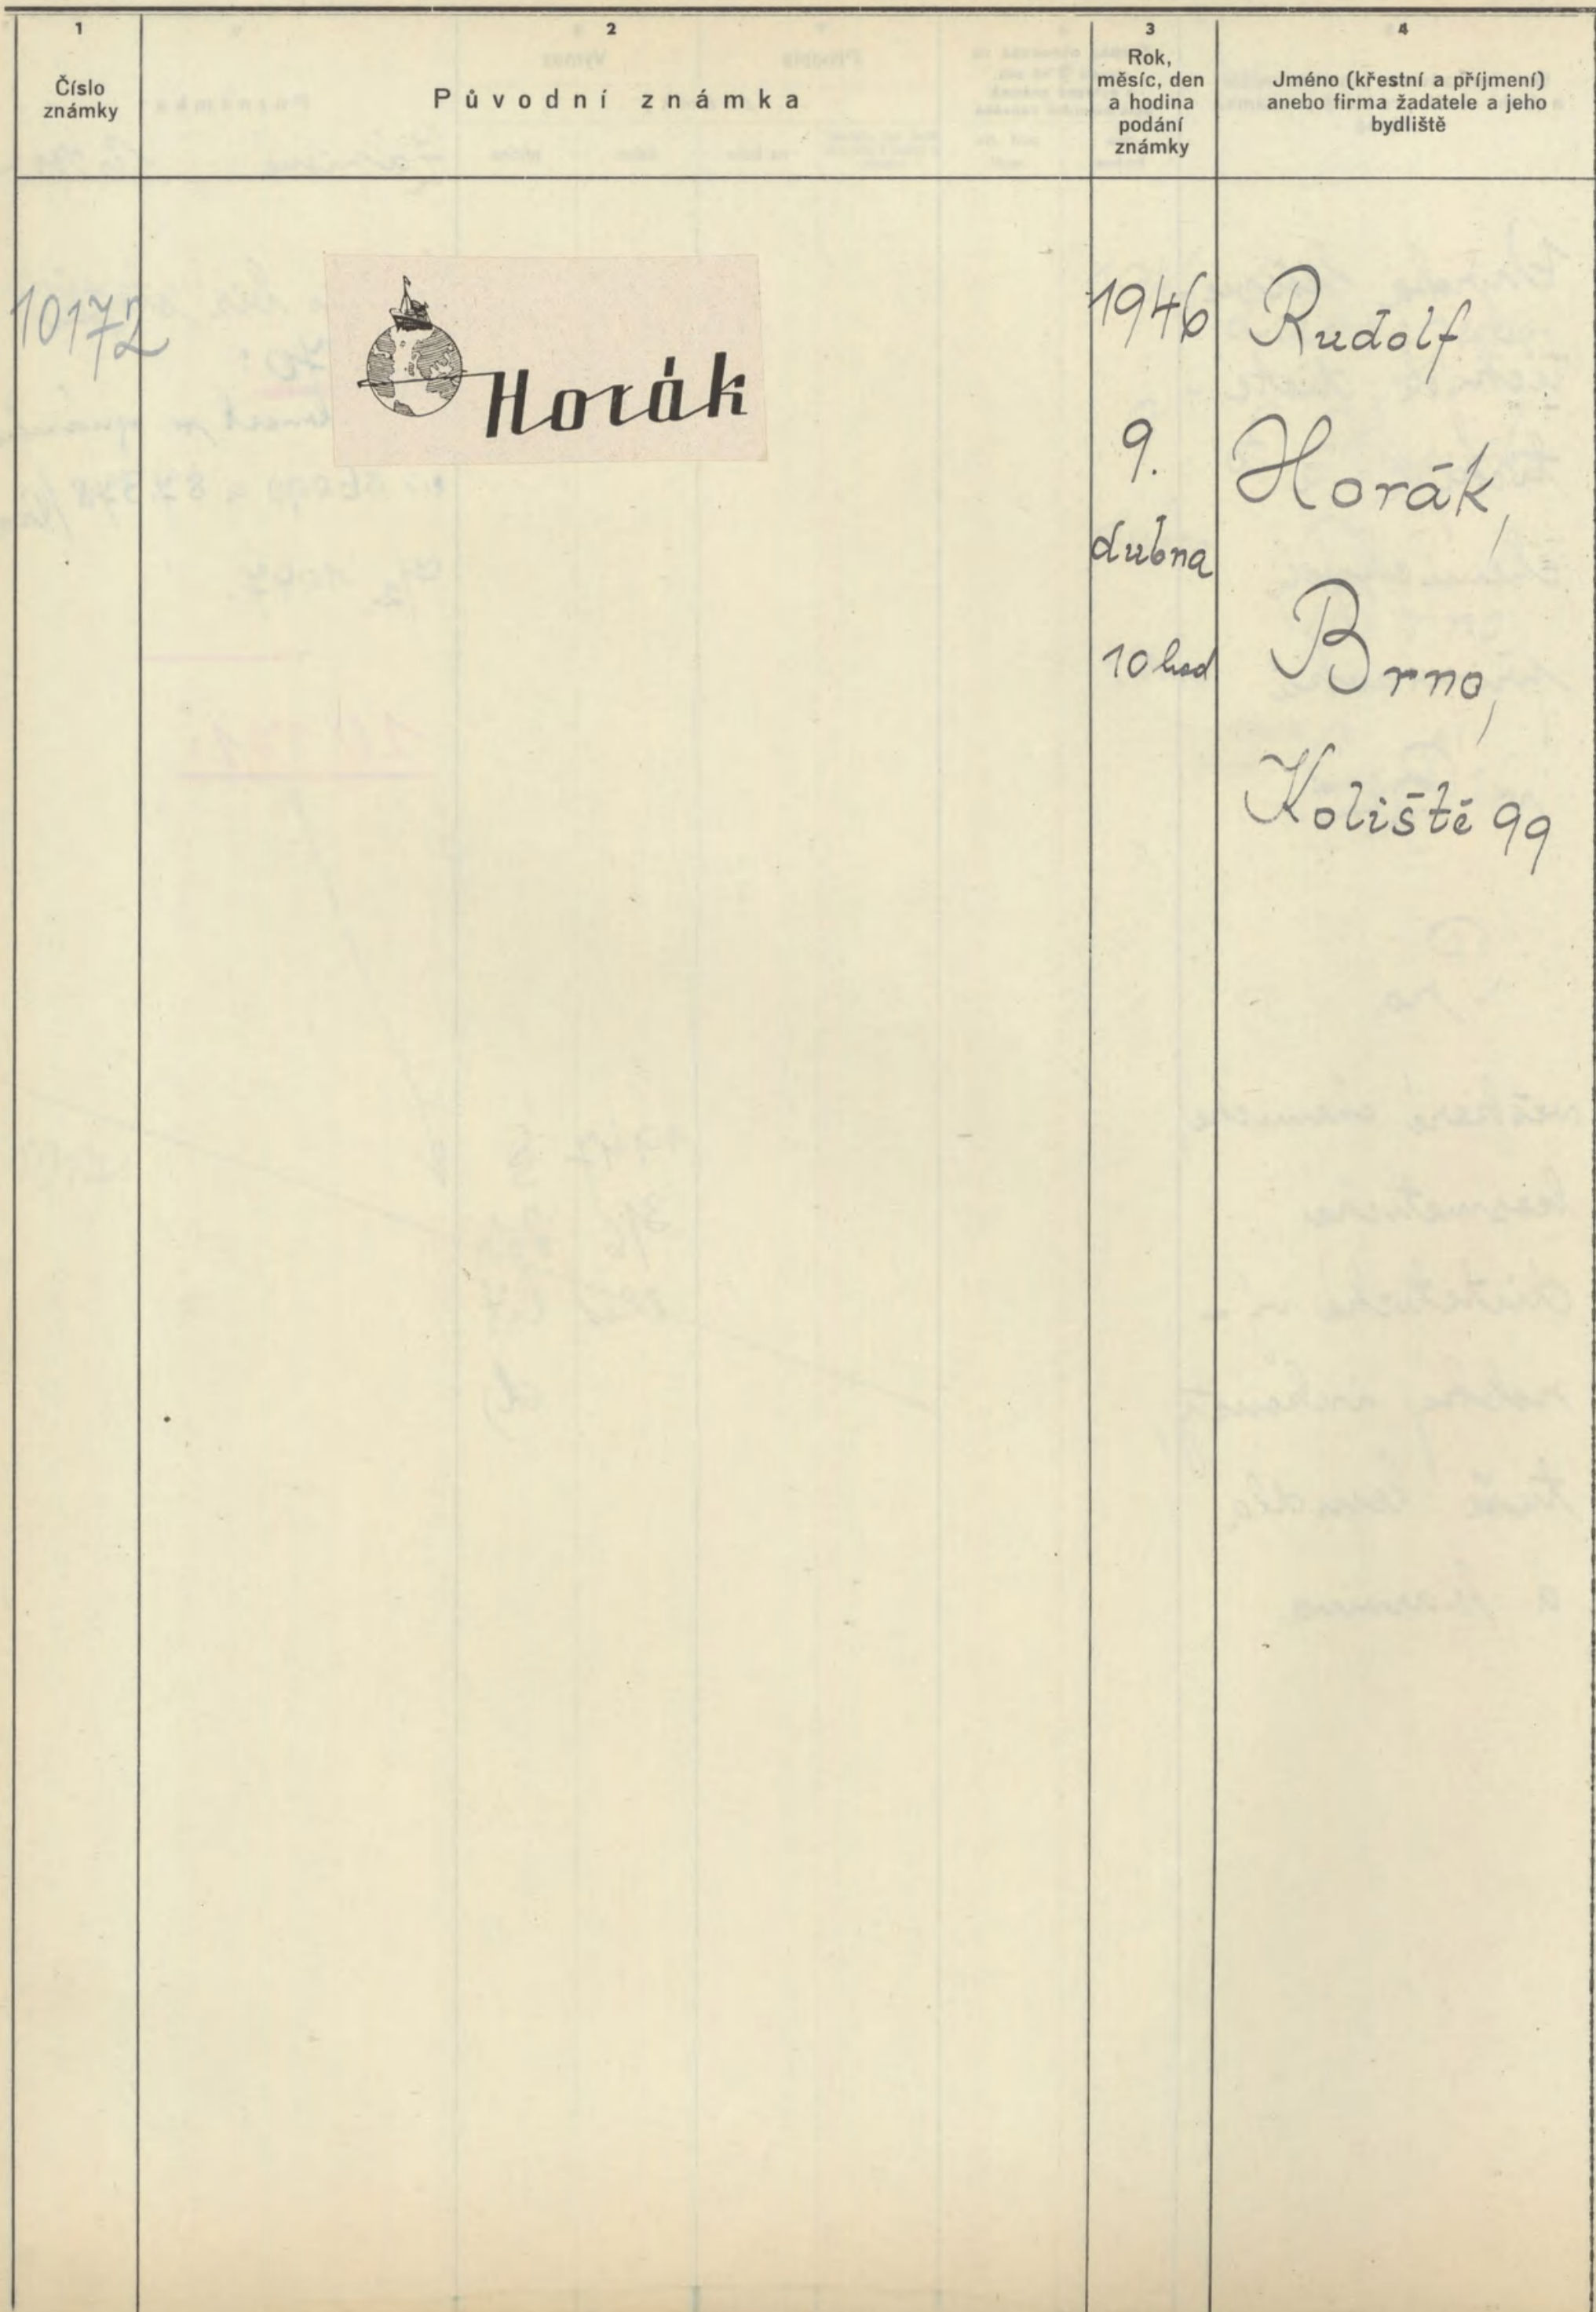 1
Číslo
známky
2
Původní známka
3
Rok,
měsíc, den
a hodina
podání
známky
4
Jméno (křestní a příjmení)
anebo firma žadatele a jeho
bydliště
10172
Horák
1946
9.
dubna
10 hod
Rudolf
Horák,
Brno,
Koliště 99